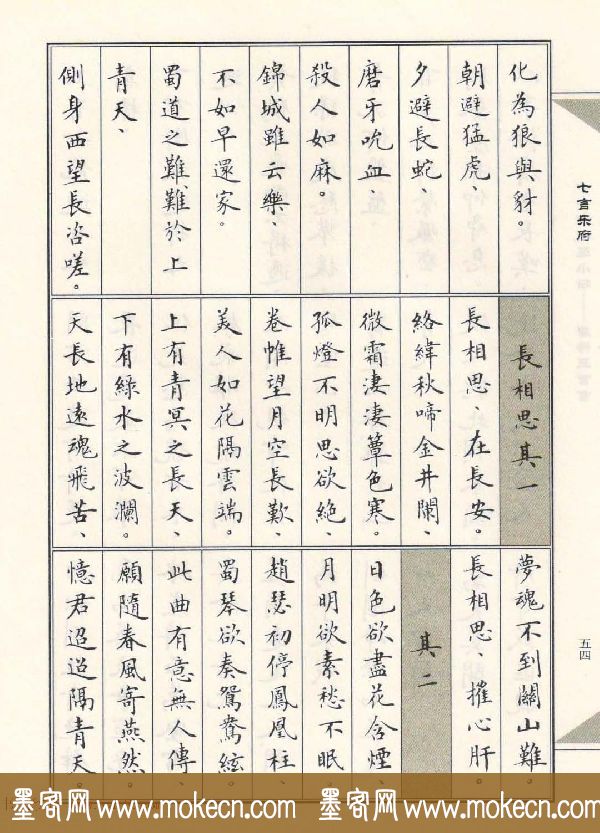 七言乐府
化為狼與豺。
朝避猛虎、
夕避長蛇、
磨牙吮血、
殺人如麻。
錦城雖云樂、
不如早還家。
蜀道之難、難於上
青天、
側身西望長咨嗟。
長相思其一
長相思、在長安。
絡緯秋啼金井闌、
微霜淒淒簟色寒。
孤燈不明思欲絕、
卷帷望月空長歎、
美人如花隔雲端。
上有青冥之長天、
下有綠水之波瀾。
天長地遠魂飛苦、
夢魂不到關山難。
長相思、摧心肝。
其二
日色欲盡花含煙、
月明欲素愁不眠。
趙瑟初停鳳凰柱、
蜀琴欲奏鴛鴦絃。
此曲有意無人傳、
願隨春風寄燕然。
憶君迢迢隔青天。
五四
墨客网 www.mokecn.com 墨客网 www.mokecn.com